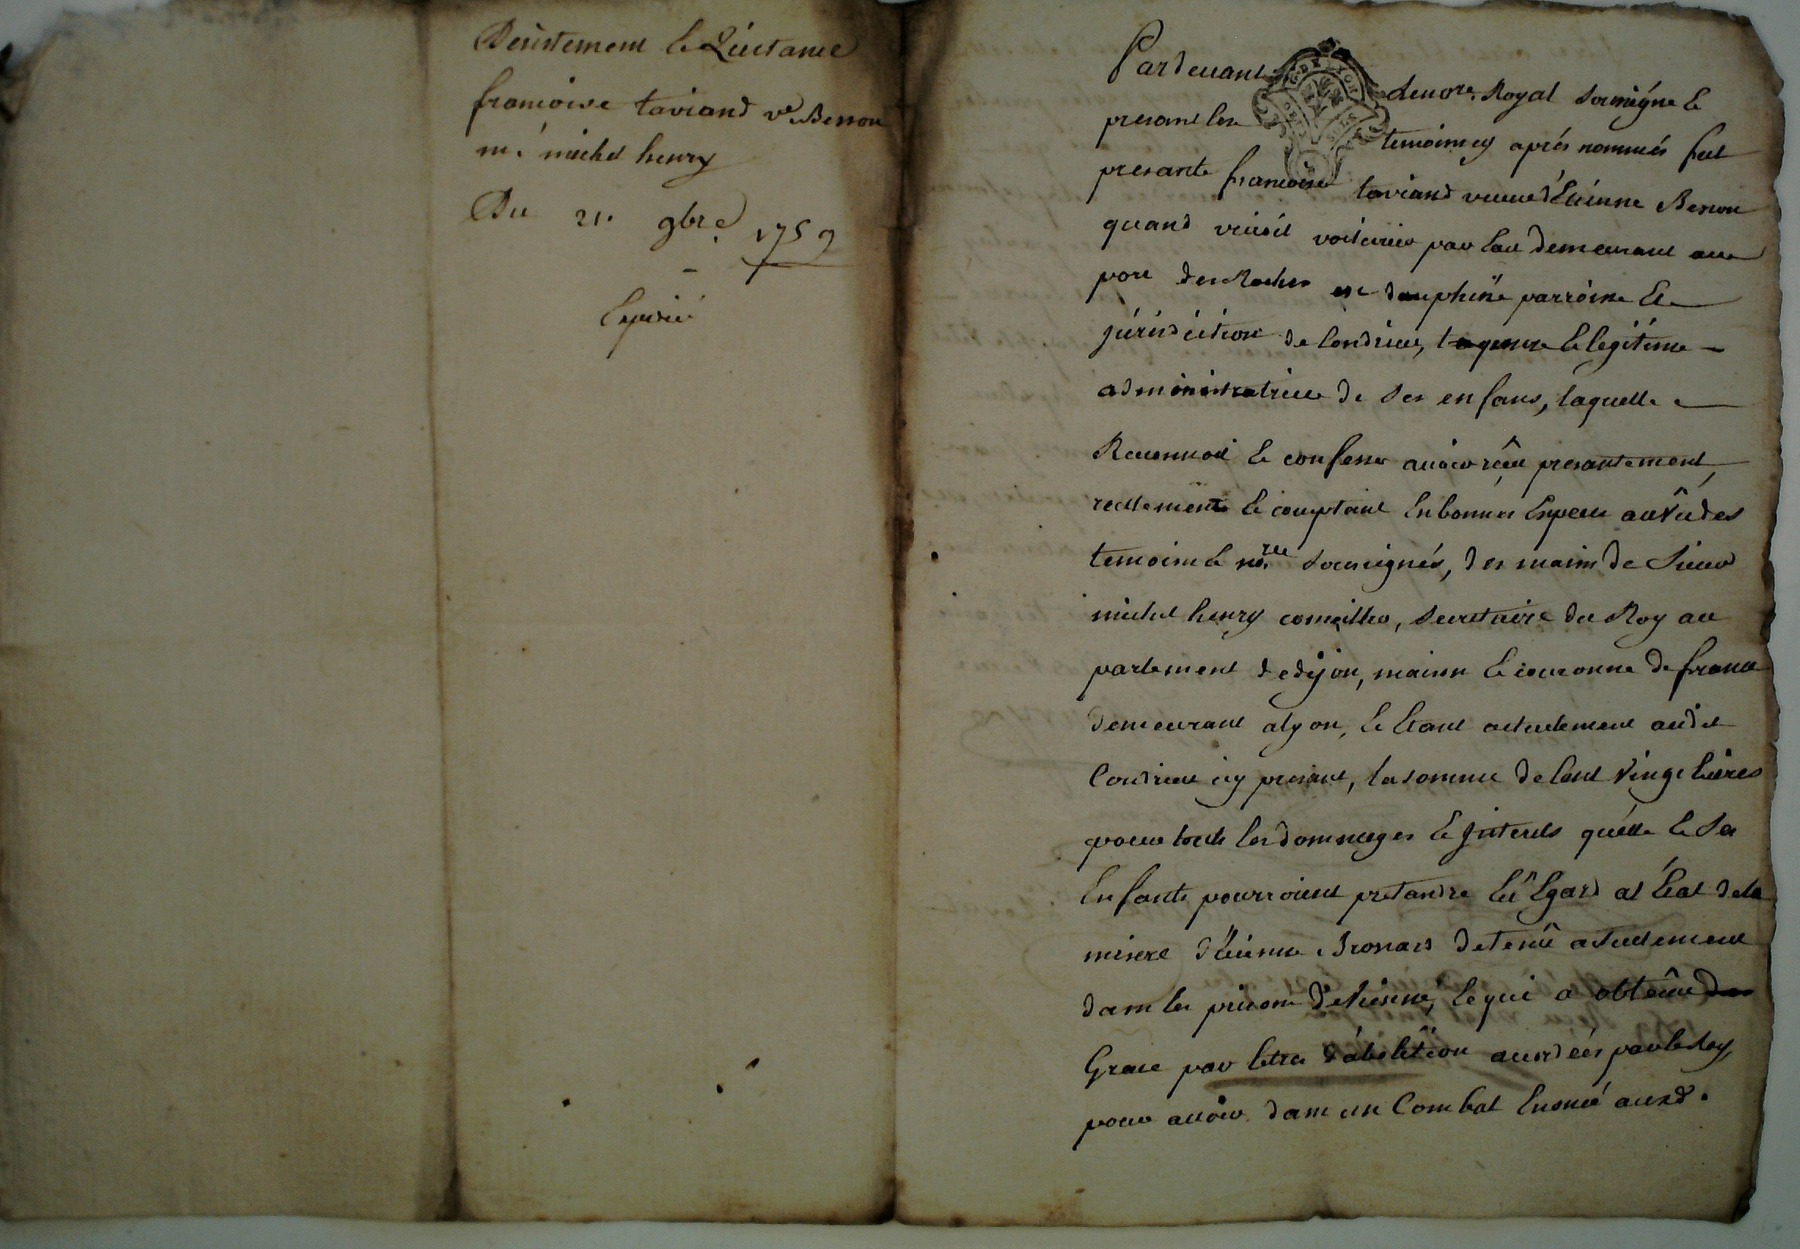 Desistement & Quictance
francoise taviand ve Besson
me michel henry
Du 21. 9bre 1759
Expedié
Pardevant Lenore. Royal soussigné &
presant les temoins cy aprés nommés fut
presante francoise taviand veuve d'Etienne Besson
quand vivoit voiturier par eau demeurant au
port des Roches en dauphiné parroisse Et
jurisdiction de Condrieu, & legitime
administratrice de ses enfans, laquelle
Reconnoit & confesse avoir rêcu presantement,
reellement & comptant En bonnes Especes aûvû des
temoins & nore soussignés, des mains de Sieur
michel henry conseiller, secretaire du Roy au
parlement de dijon, maison & couronne de france
demeurant alyon, & Etant actuellement audit
Condrieu icy presant, la somme de Cent vingt livres
pour touts les dommages & jnterets qu'elle & ses
Enfants pourroient pretandre Eû Egard al Etat de la
misere d'Etienne Bronard detenû actuellement
dans les prisons de vienne, & qui a obtenû
Grace par letres d'abolition accordées par le Roy,
pour avoir dans un Combat